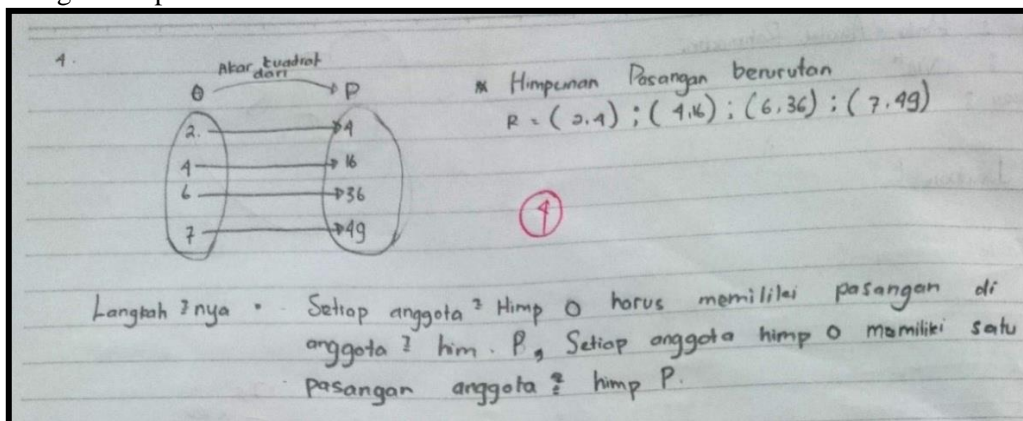 4.
Akar kuadrat
dari
O P
2. 4
4 16
6 36
7 49
* Himpunan Pasangan berurutan
R = (2.4) ; (4.16) ; (6.36) ; (7.49)
4
Langkah 2nya • Setiap anggota 2 Himp O harus memiliki pasangan di
anggota 2 him. P, Setiap anggota himp O memiliki satu
pasangan anggota 2 himp P.